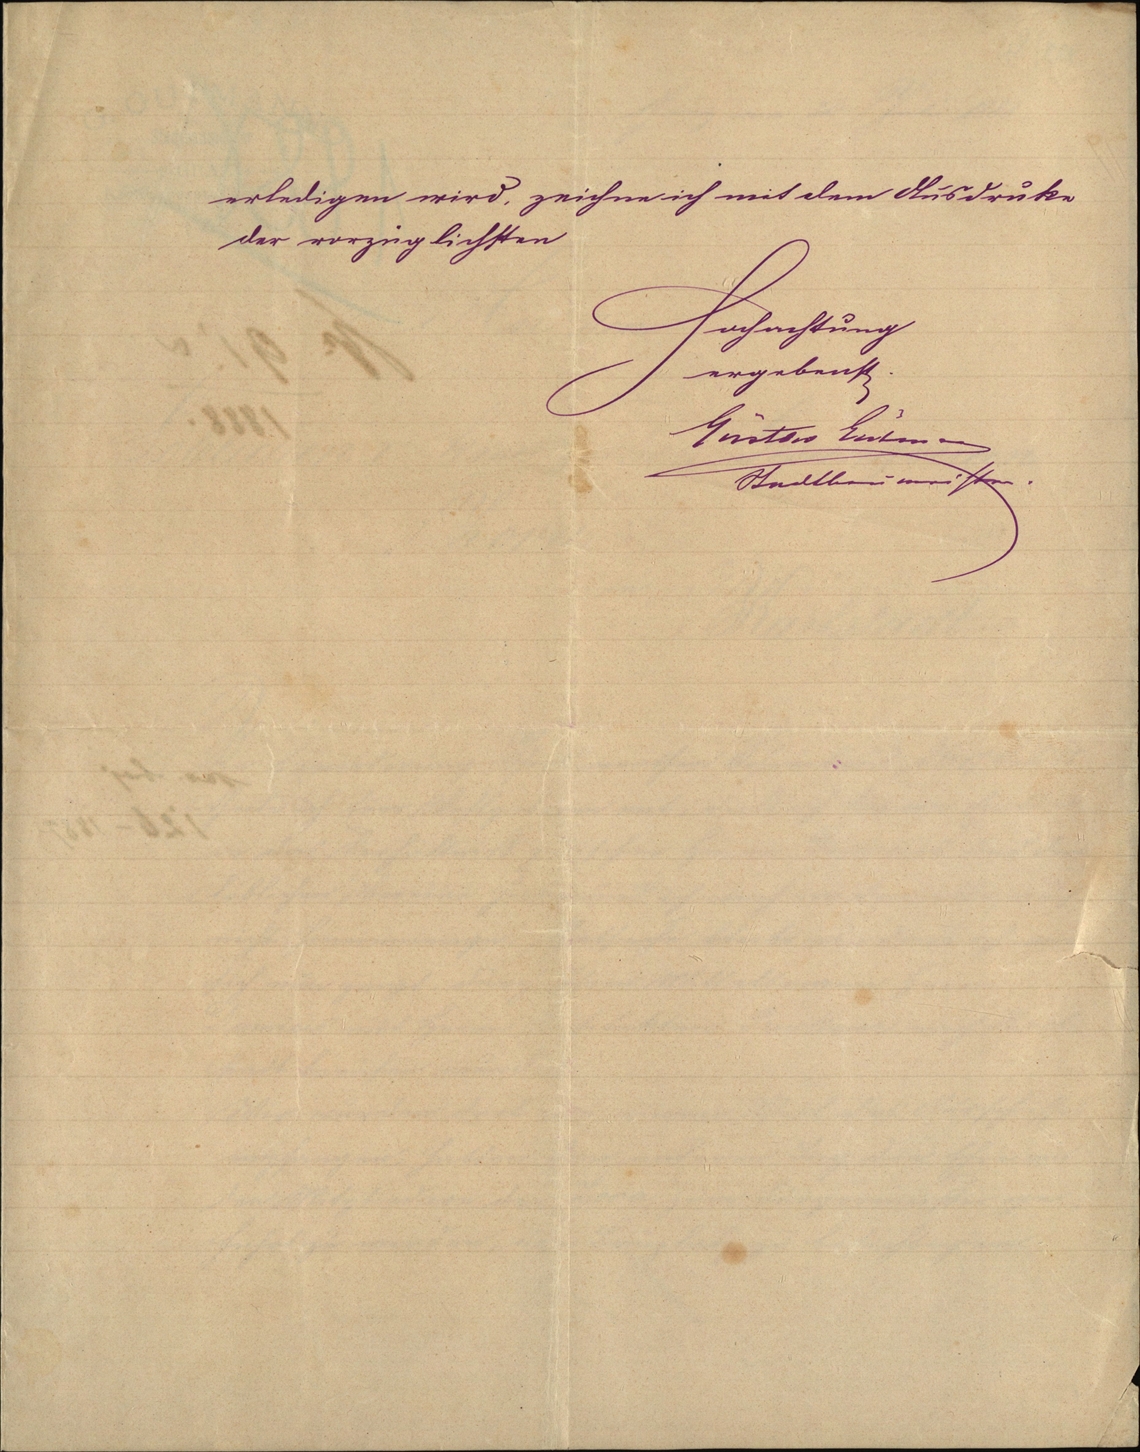 erledigen wird, zeichne ich mit dem Ausdruke
der vorzüglichsten
Hochachtung
ergebenst
Gustav
Stadtbaumeister.